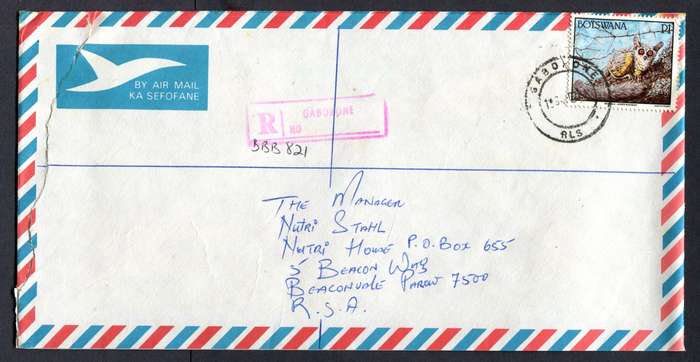 BY AIR MAIL
KA SEFOFANE
R
GABORONE
NO
BBB 821
BOTSWANA
GABORONE
RLS
THE MANAGER
NUTRI STAHL
NUTRI HOUSE P.O. BOX 655
5 BEACON WAY
BEACONVALE PAROW 7500
R.S.A.